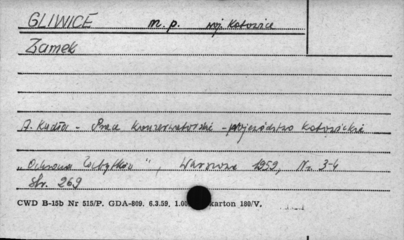 GLIWICE m.p. woj. Katowice
Zamek
A. Kudła - Prace konserwatorskie - województwo katowickie
„Ochrona Zabytków", Warszawa 1959, Nr. 3-4
Str. 269
CWD B-15b Nr 515/P. GDA-809. 6.3.59. karton 180/V.